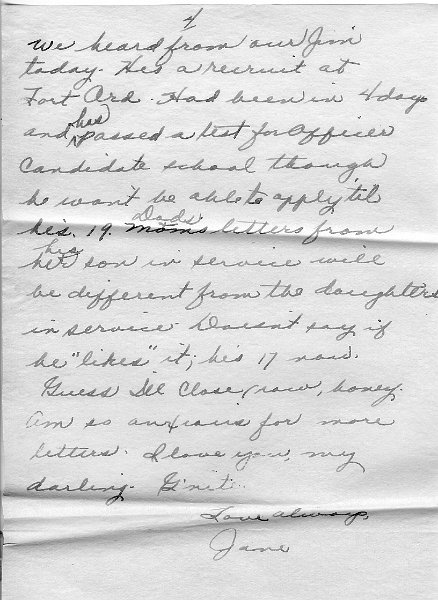 4
We heard from our Jim
today. He's a recruit at
Fort Ord. Had been in 4 days
and has passed a test for Officer
Candidate school though
he won't be able to apply til
his. 19. Dads letters from
his son in service will
be different from the daughters
in service. Doesn't say if
he "likes" it; he's 17 now.
Guess I'll close now, honey.
Am so anxious for more
letters. I love you, my
darling. G'nit.
Love always,
Jane